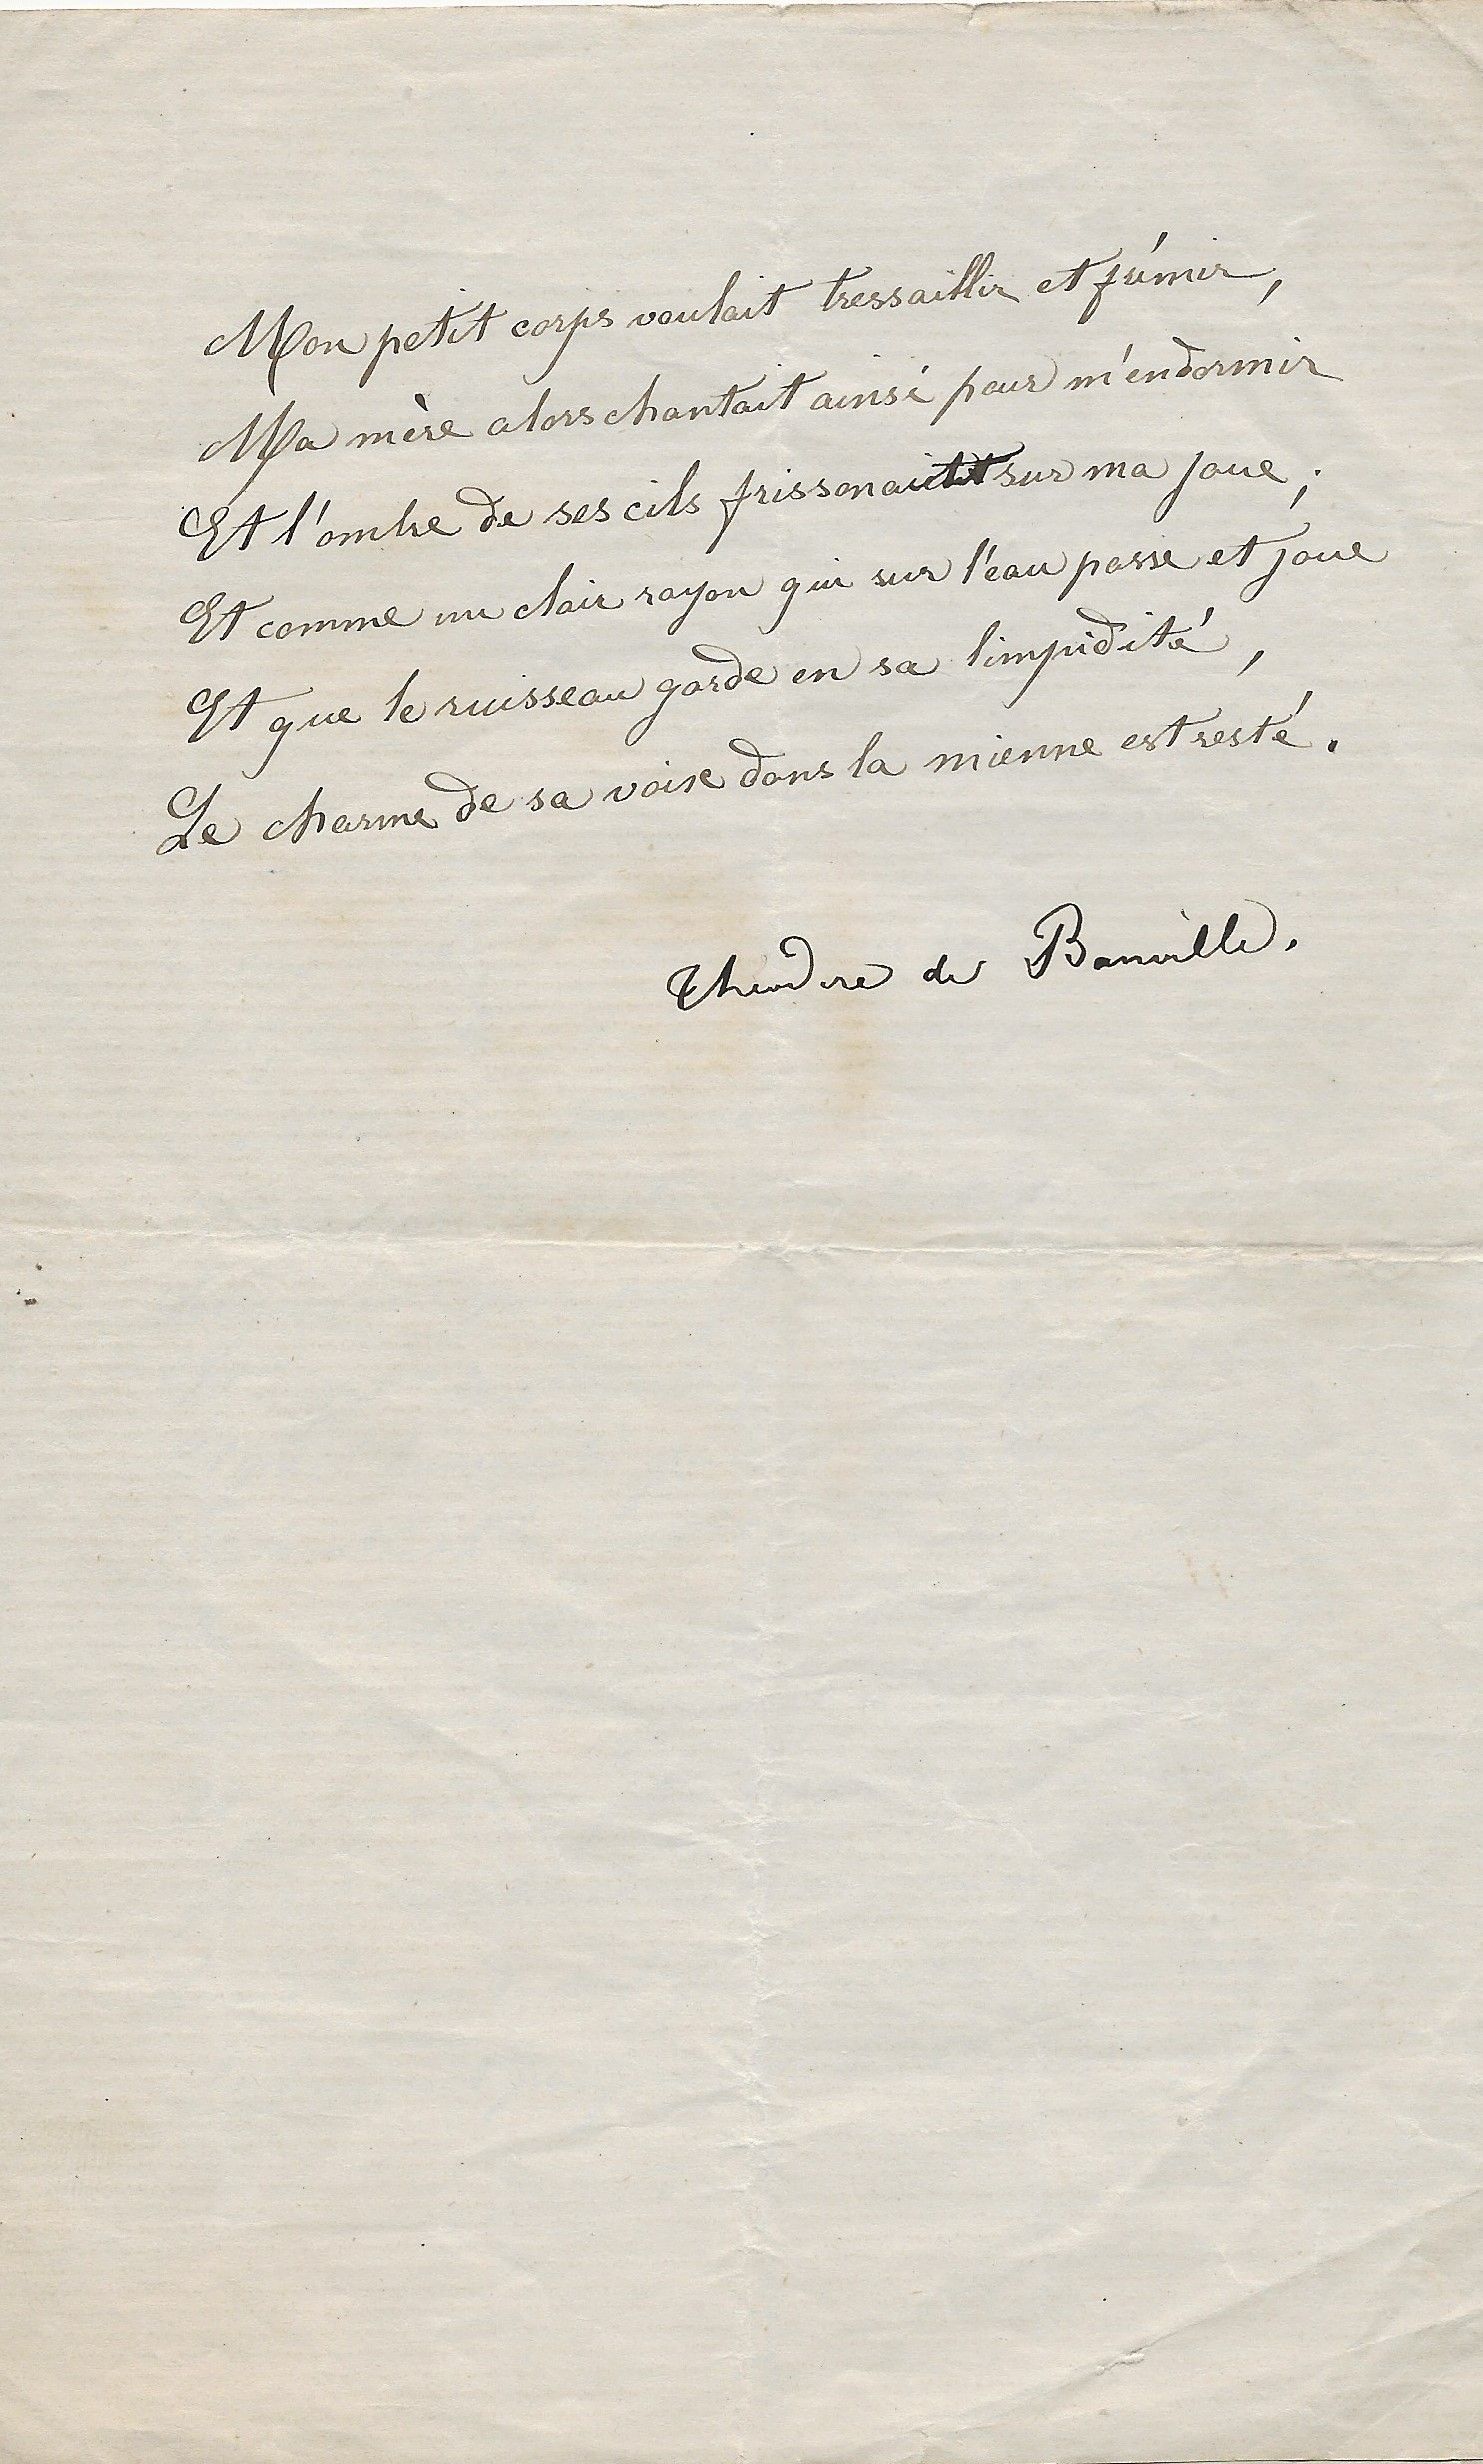 Mon petit corps voulait tressaillir et frémir,
Ma mère alors chantait ainsi pour m'endormir
Et l'ombre de ses cils frissonait sur ma joue ;
Et comme un clair rayon qui sur l'eau passe et joue
Et que le ruisseau garde en sa limpidité,
Le charme de sa voix dans la mienne est resté.
Théodore de Banville.